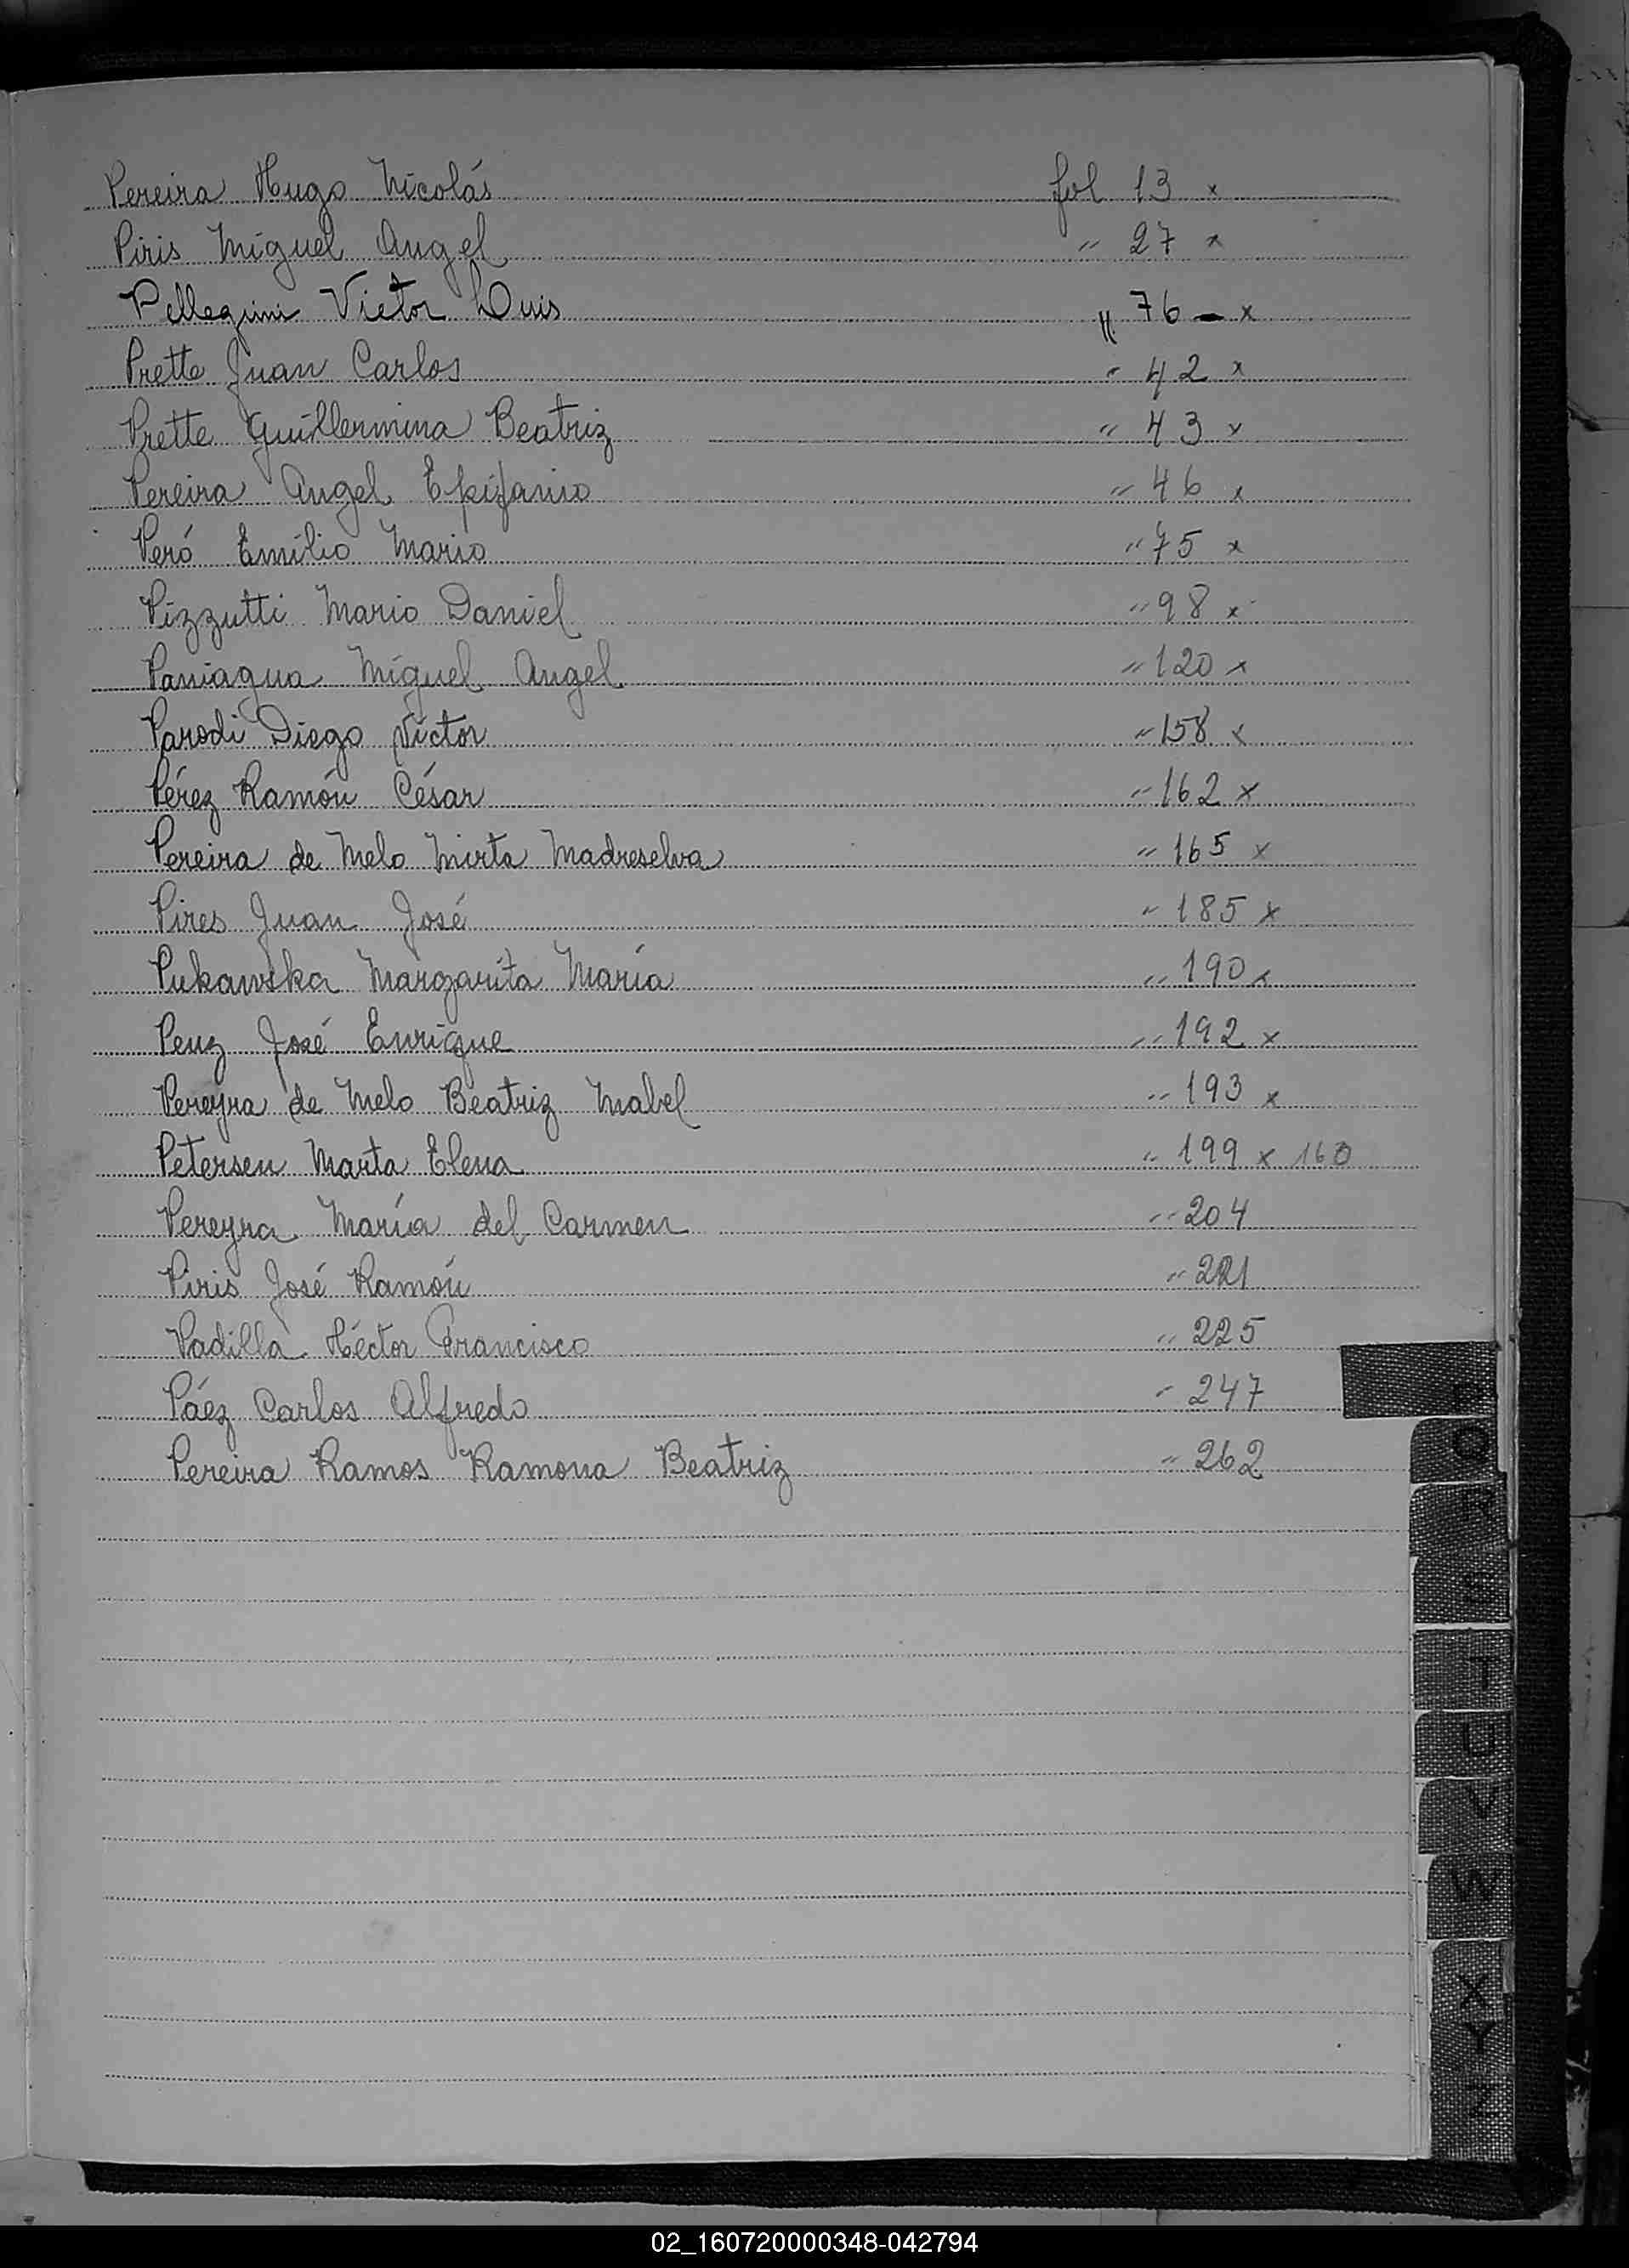 Pereira Hugo Nicolás fol 13 x
Piris Miguel Angel " 27 x
Pellegrini Victor Luis " 76 - x
Prette Juan Carlos " 42 x
Prette Guillermina Beatriz " 43 x
Pereira Angel Epifanio " 46 x
Peró Emilio Mario " 75 x
Pizzutti Mario Daniel " 98 x
Paniagua Miguel Angel " 120 x
Parodi Diego Víctor " 158 x
Pérez Ramón César " 162 x
Pereira de Melo Mirta Madreselva " 165 x
Pires Juan José " 185 x
Pukawska Margarita María " 190 x
Penz José Enrique " 192 x
Pereyra de Melo Beatriz Mabel " 193 x
Petersen Marta Elena " 199 x 160
Pereyra María del Carmen " 204
Piris José Ramón " 221
Padilla Héctor Francisco " 225
Páez Carlos Alfredo " 247
Pereira Ramos Ramona Beatriz " 262
P
Q
R
S
T
U
V
W
X
Y
Z
02_160720000348-042794